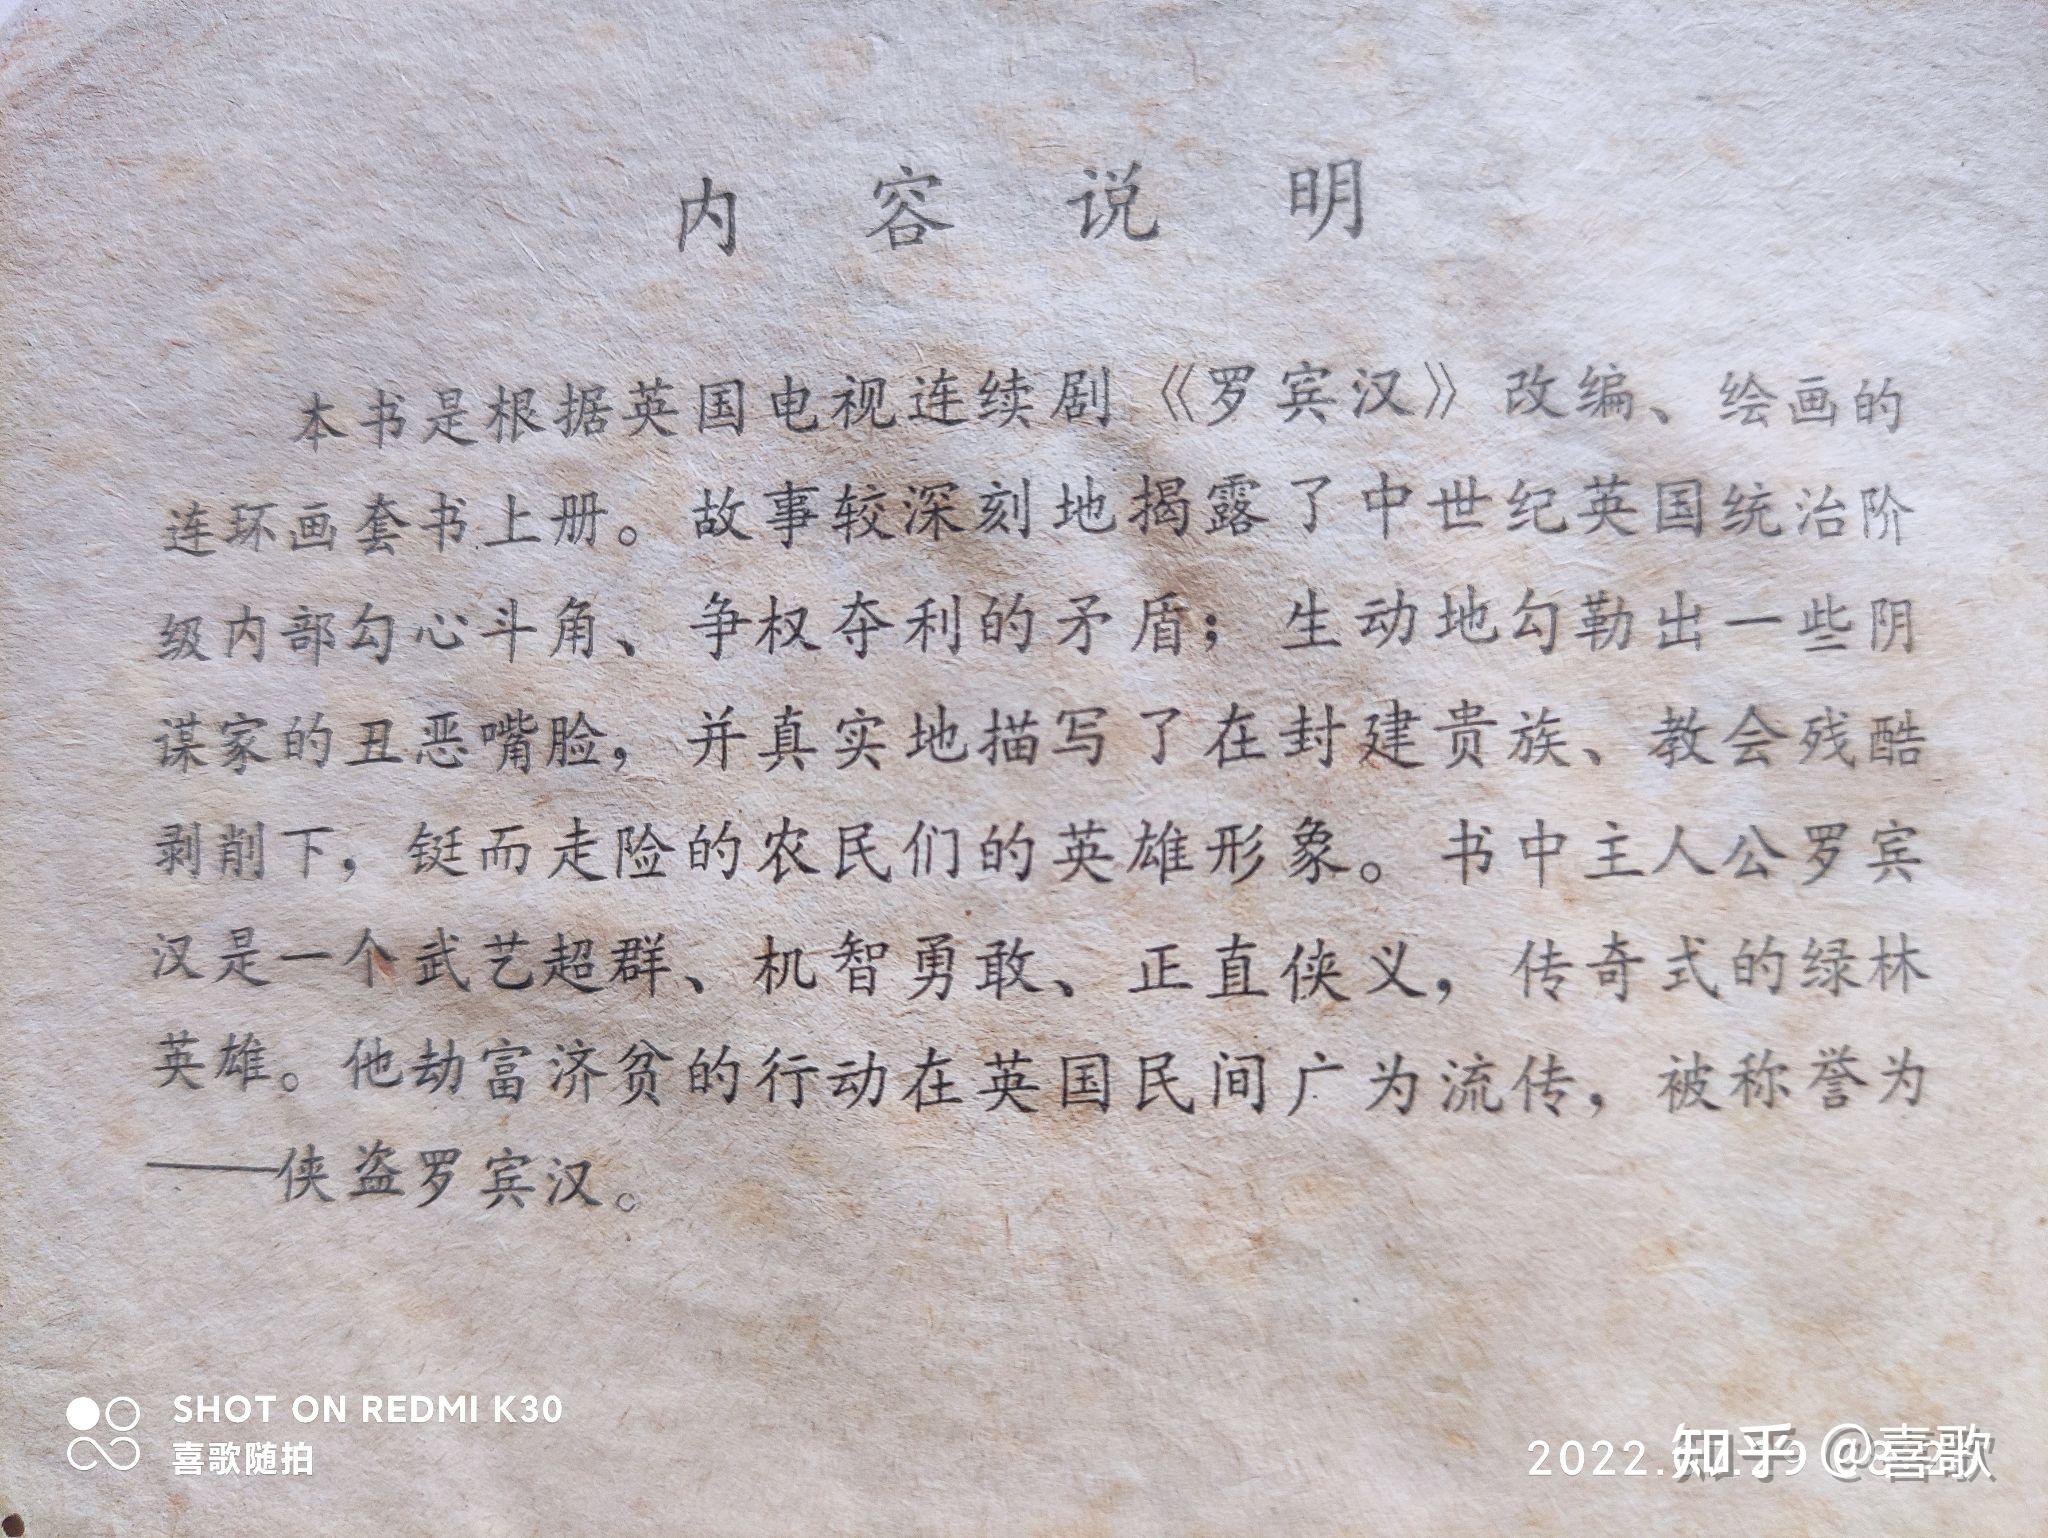 内容说明
本书是根据英国电视连续剧《罗宾汉》改编、绘画的
连环画套书上册。故事较深刻地揭露了中世纪英国统治阶
级内部勾心斗角、争权夺利的矛盾；生动地勾勒出一些阴
谋家的丑恶嘴脸，并真实地描写了在封建贵族、教会残酷
剥削下，铤而走险的农民们的英雄形象。书中主人公罗宾
汉是一个武艺超群、机智勇敢、正直侠义，传奇式的绿林
英雄。他劫富济贫的行动在英国民间广为流传，被称誉为
——侠盗罗宾汉。
SHOT ON REDMI K30
喜歌随拍
2022.
知乎 @喜歌